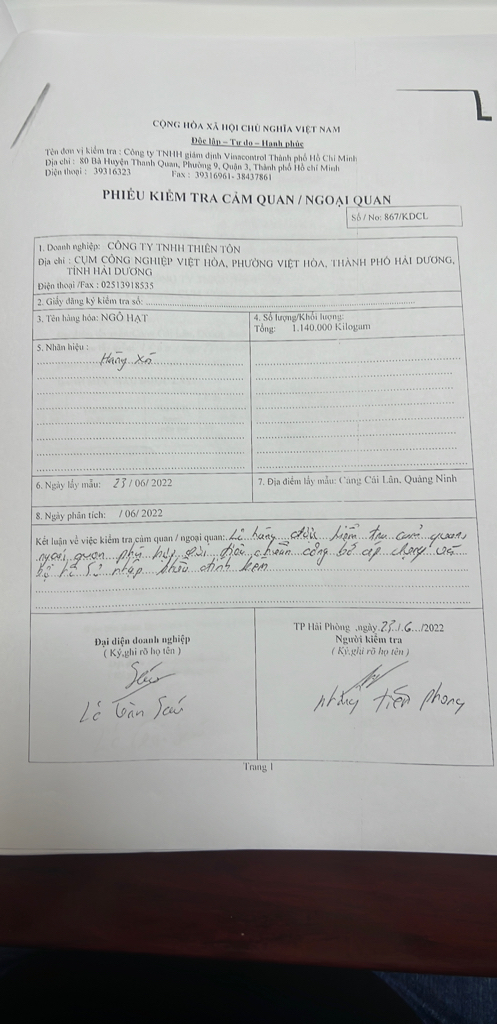 CỘNG HÒA XÃ HỘI CHỦ NGHĨA VIỆT NAM
Độc lập – Tự do – Hạnh phúc
Tên đơn vị kiểm tra : Công ty TNHH giám định Vinacontrol Thành phố Hồ Chí Minh
Địa chỉ : 80 Bà Huyện Thanh Quan, Phường 9, Quận 3, Thành phố Hồ chí Minh
Điện thoại : 39316323 Fax : 39316961- 38437861
PHIẾU KIỂM TRA CẢM QUAN / NGOẠI QUAN
Số / No: 867/KDCL
1. Doanh nghiệp: CÔNG TY TNHH THIÊN TÔN
Địa chỉ : CỤM CÔNG NGHIỆP VIỆT HÒA, PHƯỜNG VIỆT HÒA, THÀNH PHỐ HẢI DƯƠNG,
TỈNH HẢI DƯƠNG
Điện thoại /Fax : 02513918535
2. Giấy đăng ký kiểm tra số:
3. Tên hàng hóa: NGÔ HẠT
4. Số lượng/Khối lượng:
Tổng: 1.140.000 Kilogam
5. Nhãn hiệu :
Hàng xá
6. Ngày lấy mẫu: 23 / 06/ 2022
7. Địa điểm lấy mẫu: Cảng Cái Lân, Quảng Ninh
8. Ngày phân tích: / 06/ 2022
Kết luận về việc kiểm tra cảm quan / ngoại quan: Lô hàng được kiểm tra cảm quan
ngoại quan phù hợp tiêu chuẩn công bố áp dụng và
hồ sơ nhập khẩu đính kèm
TP Hải Phòng ,ngày 23/.6.../2022
Đại diện doanh nghiệp
( Ký,ghi rõ họ tên )
Người kiểm tra
( Ký,ghi rõ họ tên )
Lê
Tiến Phong
Trang 1